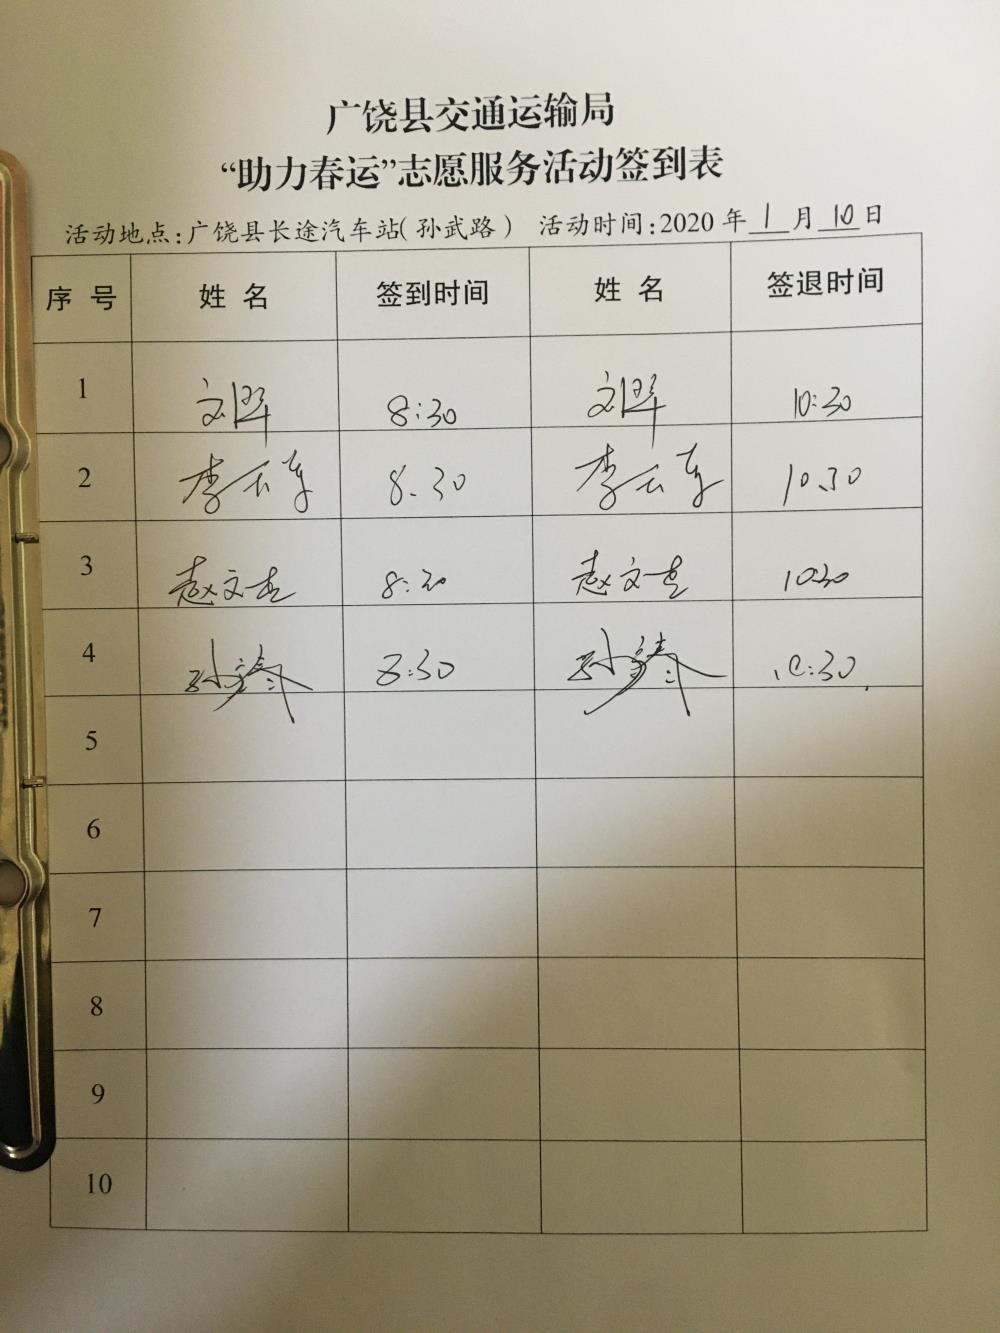 广饶县交通运输局
“助力春运”志愿服务活动签到表
活动地点:广饶县长途汽车站(孙武路) 活动时间:2020年1月10日
序号 姓名 签到时间 姓名 签退时间
1 8:30 10:30
2 8.30 10.30
3 赵文杰 8:30 赵文杰 1030
4 8:30 10:30
5
6
7
8
9
10